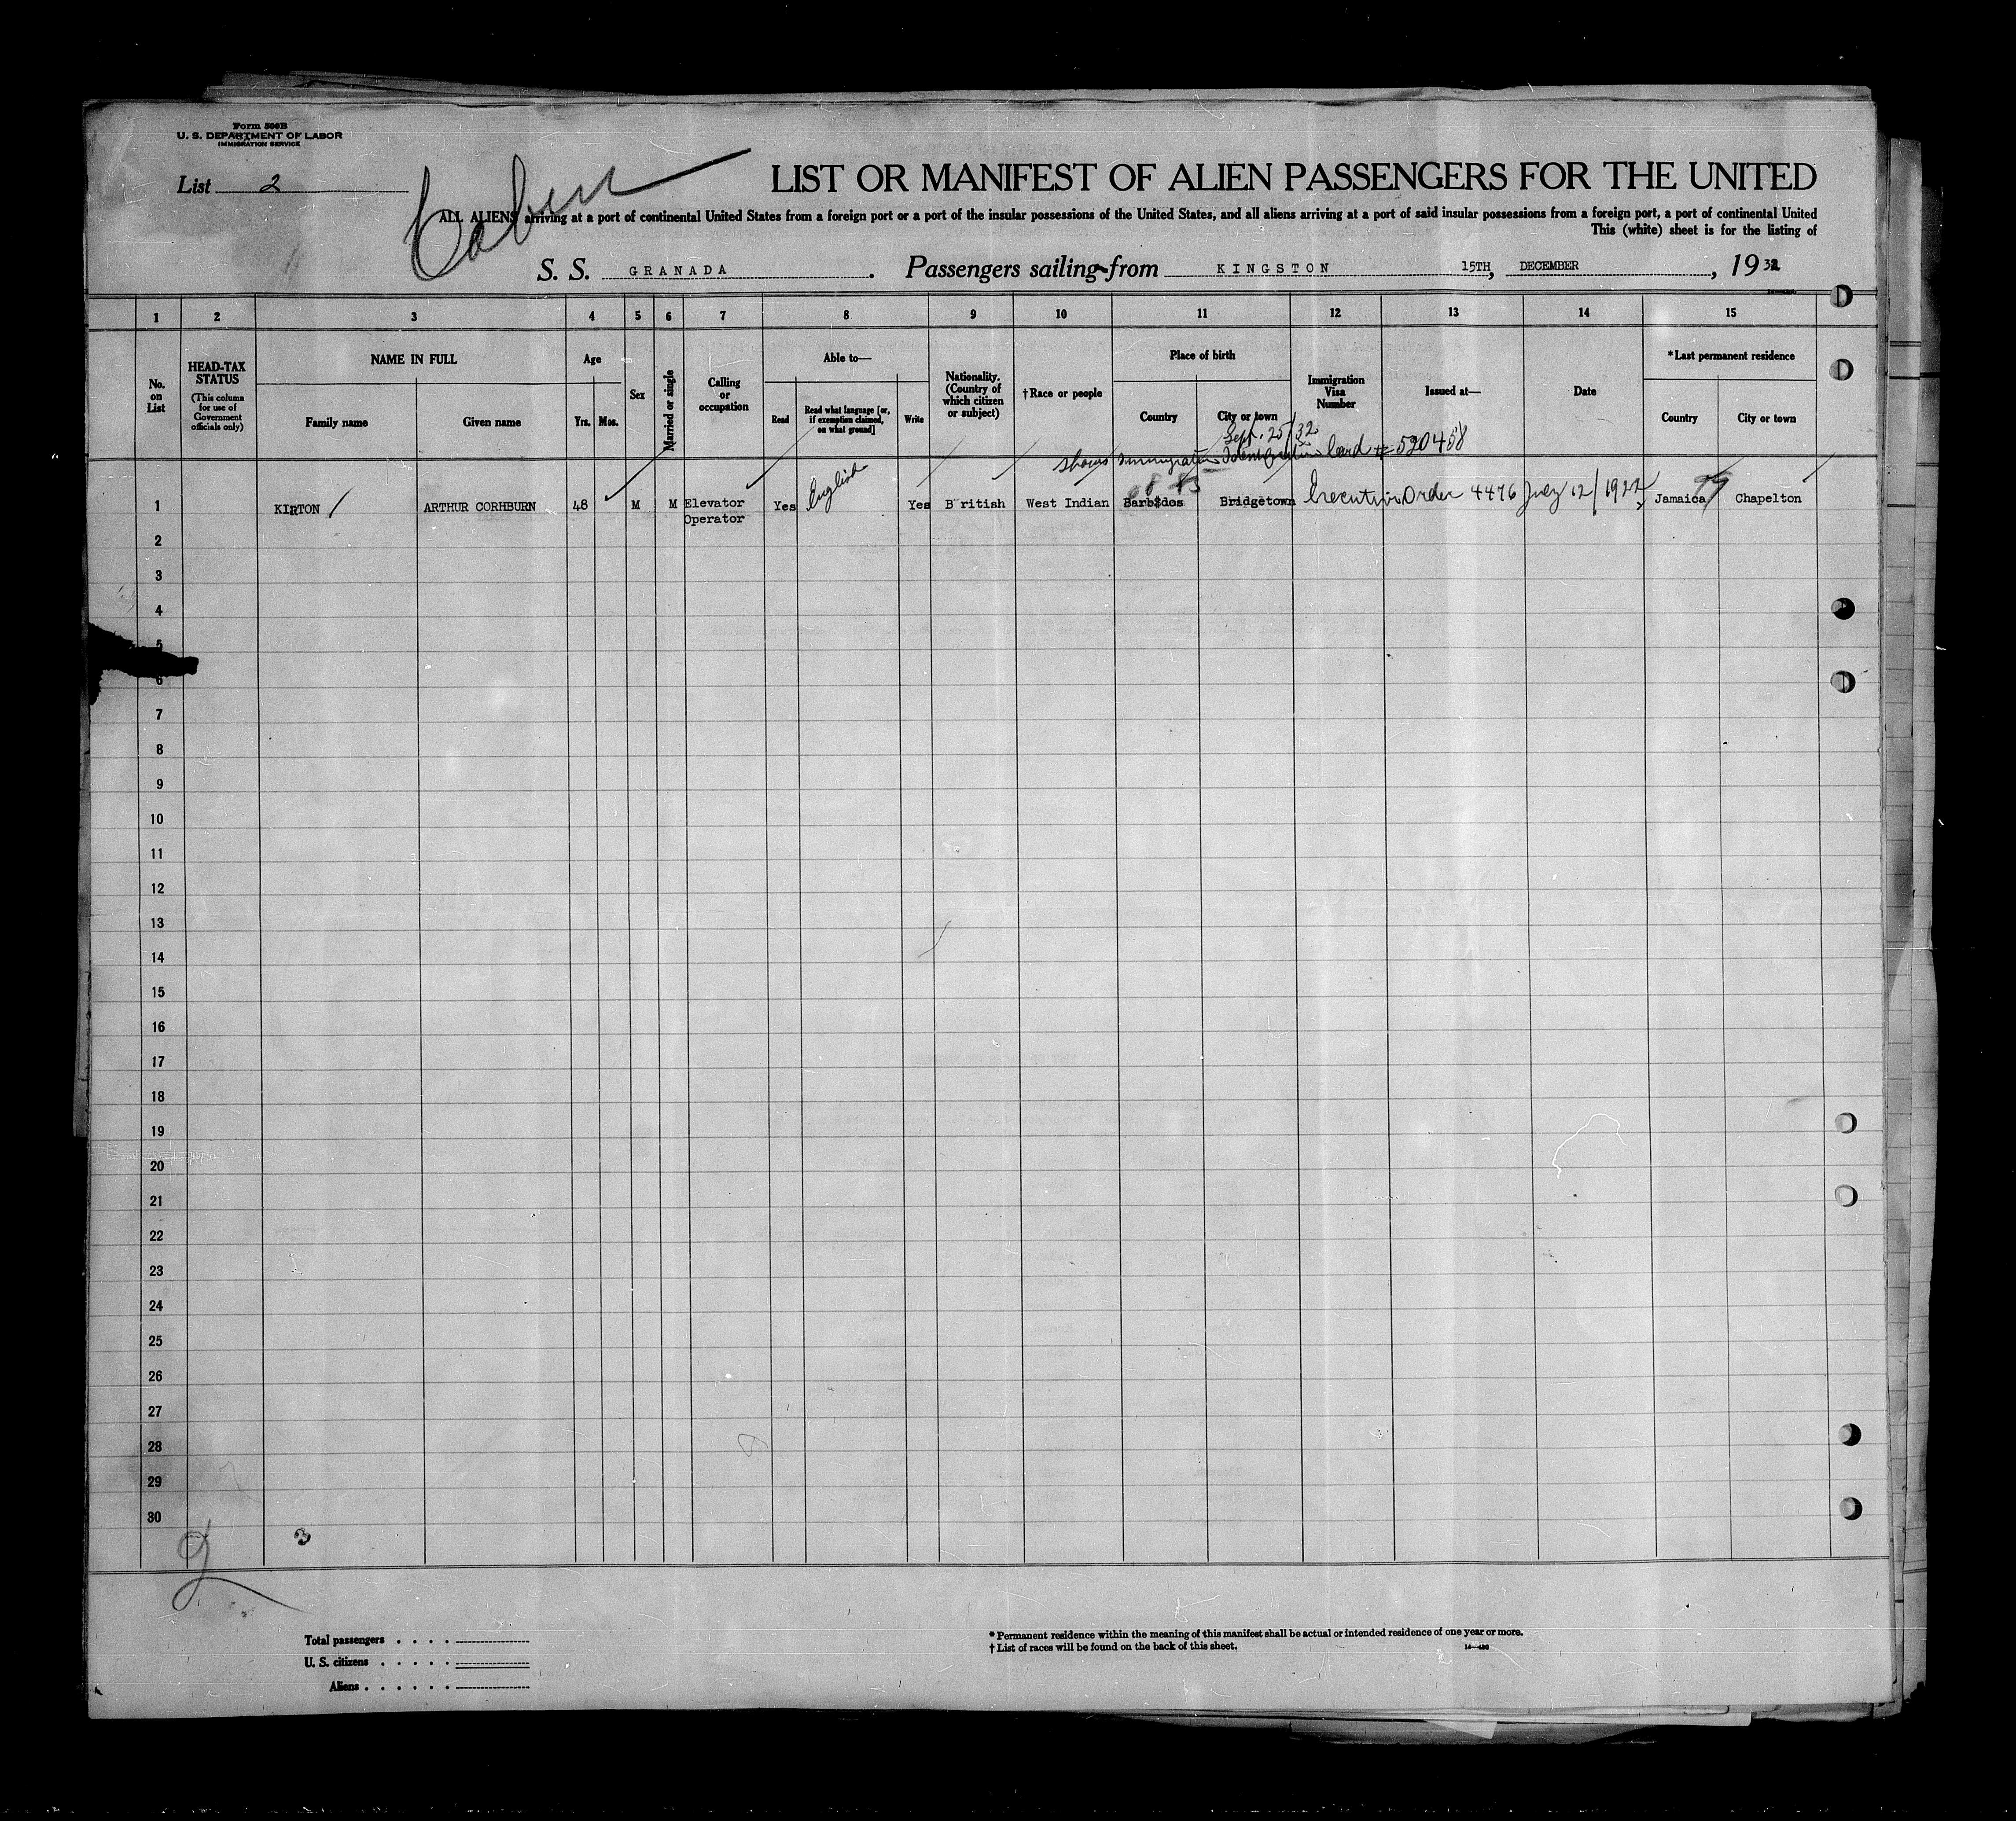 Form 500B
U. S. DEPARTMENT OF LABOR
IMMIGRATION SERVICE
List 2
Cabin
LIST OR MANIFEST OF ALIEN PASSENGERS FOR THE UNITED
ALL ALIENS arriving at a port of continental United States from a foreign port or a port of the insular possessions of the United States, and all aliens arriving at a port of said insular possessions from a foreign port, a port of continental United
This (white) sheet is for the listing of
S. S. GRANADA. Passengers sailing from KINGSTON 15TH, DECEMBER, 1932
1 2 3 4 5 6 7 8 9 10 11 12 13 14 15
No. on List
HEAD-TAX STATUS (This column for use of Government officials only)
NAME IN FULL
Family name Given name
Age
Yrs. Mos.
Sex
Married or single
Calling or occupation
Able to—
Read Read what language [or, if exemption claimed, on what ground] Write
Nationality. (Country of which citizen or subject)
†Race or people
Place of birth
Country City or town
Immigration Visa Number
Issued at—
Date
*Last permanent residence
Country City or town
Sept. 25/32
shows Immigration Identification Card # 520458
1 KIRTON ARTHUR CORHBURN 48 M M Elevator Operator Yes English Yes British West Indian Barbados Bridgetown Executive Order 4476 July 12/1922 Jamaica Chapelton
2
3
4
5
6
7
8
9
10
11
12
13
14
15
16
17
18
19
20
21
22
23
24
25
26
27
28
29
30
3
Total passengers
U. S. citizens
Aliens
* Permanent residence within the meaning of this manifest shall be actual or intended residence of one year or more.
† List of races will be found on the back of this sheet.